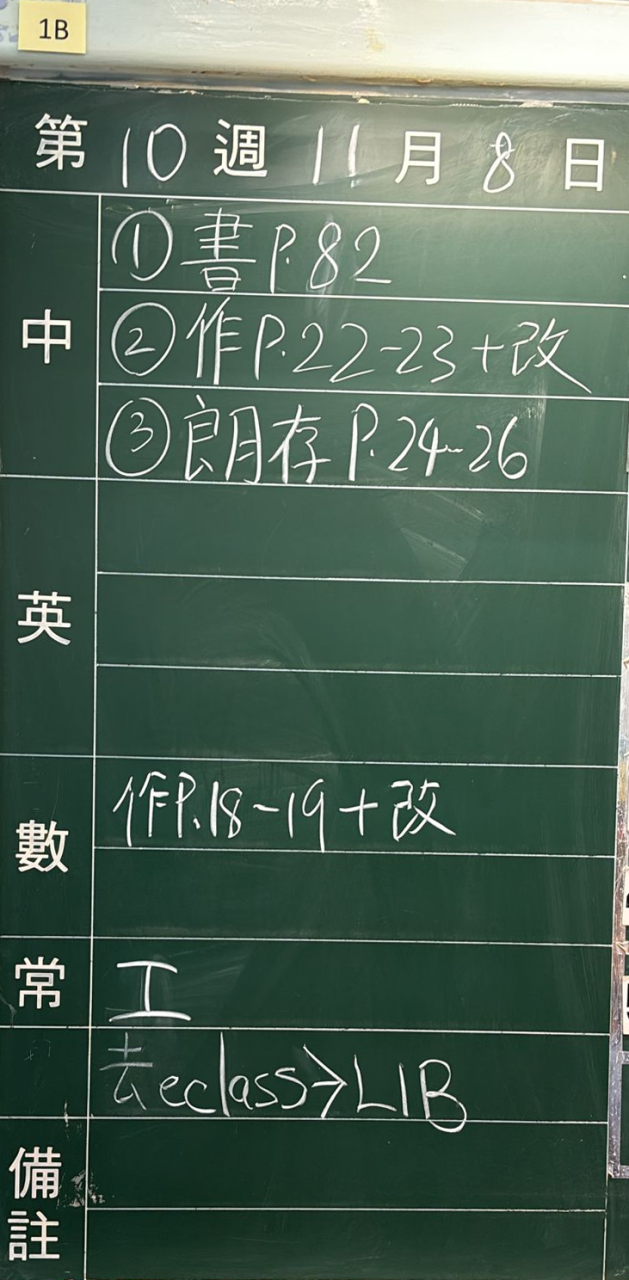 1B
第10週11月8日
中
①書P.82
②作P.22-23+改
③朗存P.24-26
英
數
作P.18-19+改
常
工
去eclass→LIB
備註